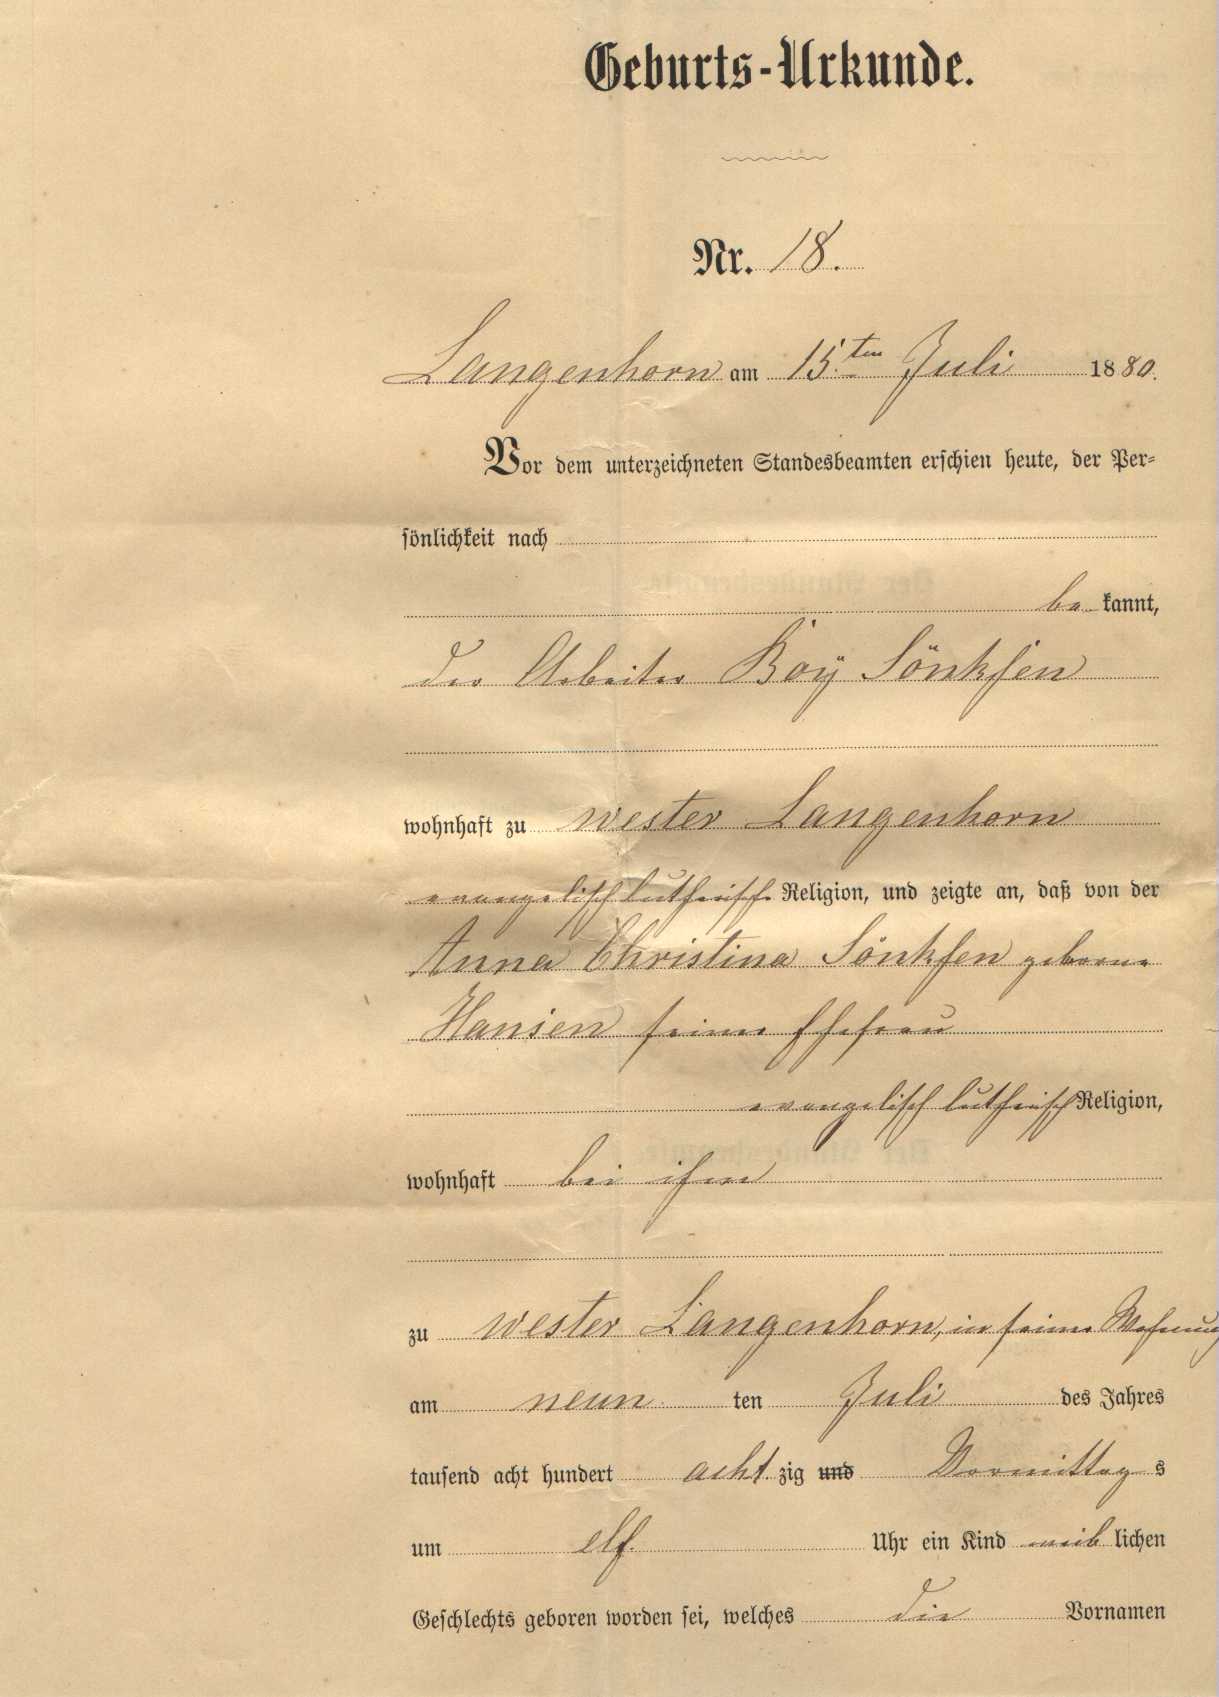 Geburts-Urkunde.
Nr. 18.
Langenhorn am 15.ten Juli 1880.
Vor dem unterzeichneten Standesbeamten erschien heute, der Per-
sönlichkeit nach
bekannt,
der Arbeiter Boÿ Sönksen
wohnhaft zu wester Langenhorn
evangelisch lutherische Religion, und zeigte an, daß von der
Anna Christina Sönksen geborne
Hansen seiner Ehefrau
evangelisch lutherisch Religion,
wohnhaft bei ihm
zu wester Langenhorn, in seiner Wohnung
am neun ten Juli des Jahres
tausend acht hundert achtzig und Vormittags
um elf. Uhr ein Kind weiblichen
Geschlechts geboren worden sei, welches die Vornamen